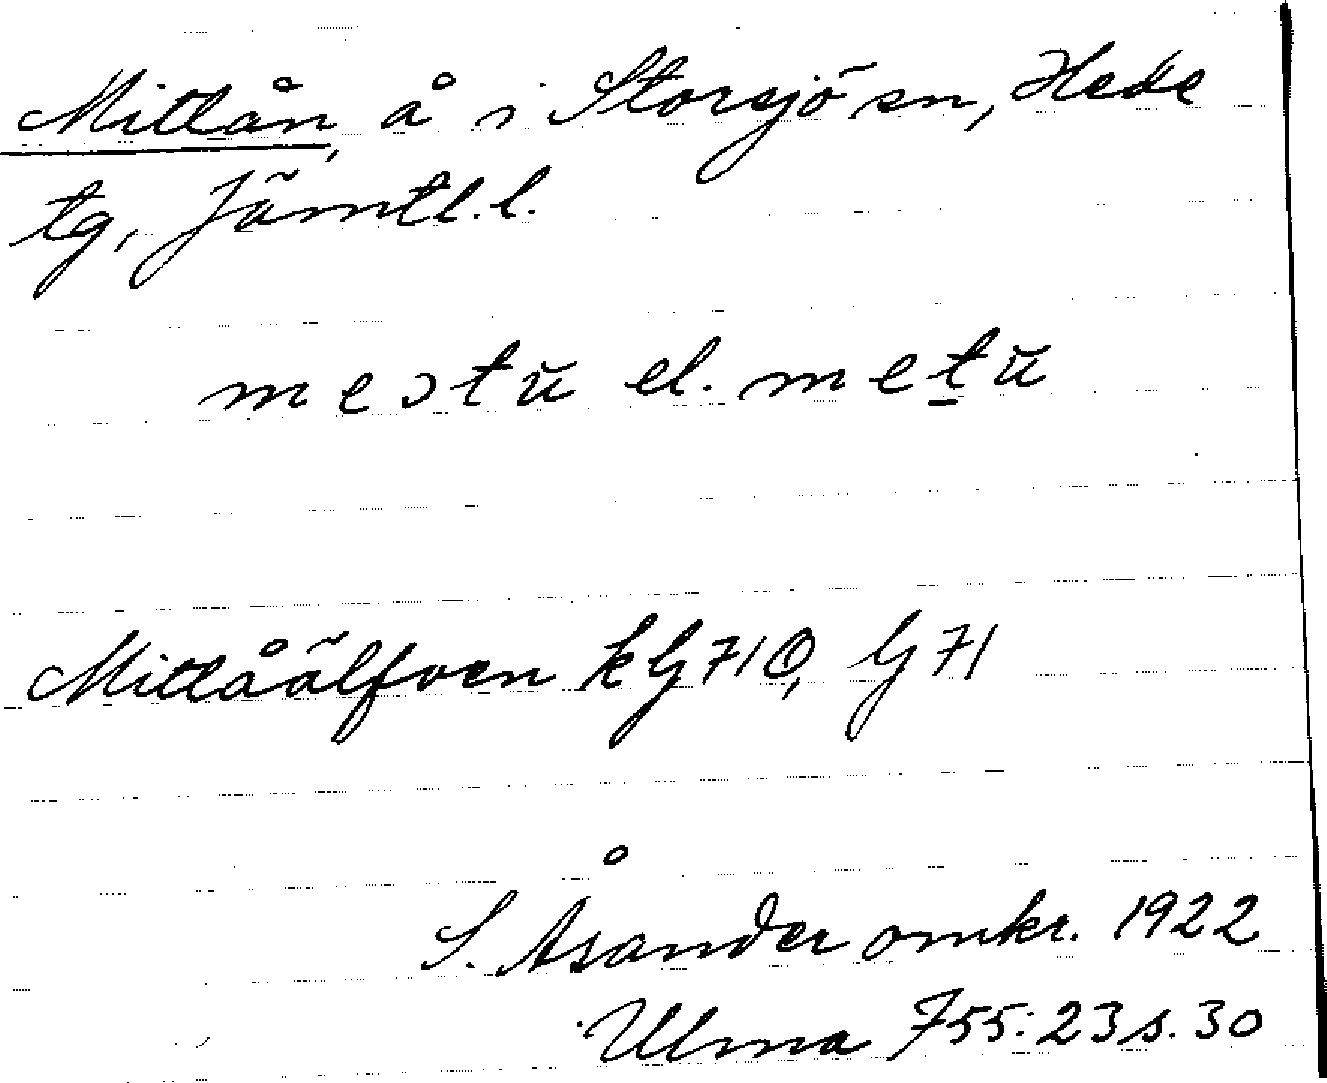 Mittån, å i Storsjö sn, Hede
tg, Jämtl. l.
meɔtŭ el. metŭ
Mittåälfven kG710, G71
S. Åsander omkr. 1922
Ulma 755:23 s. 30